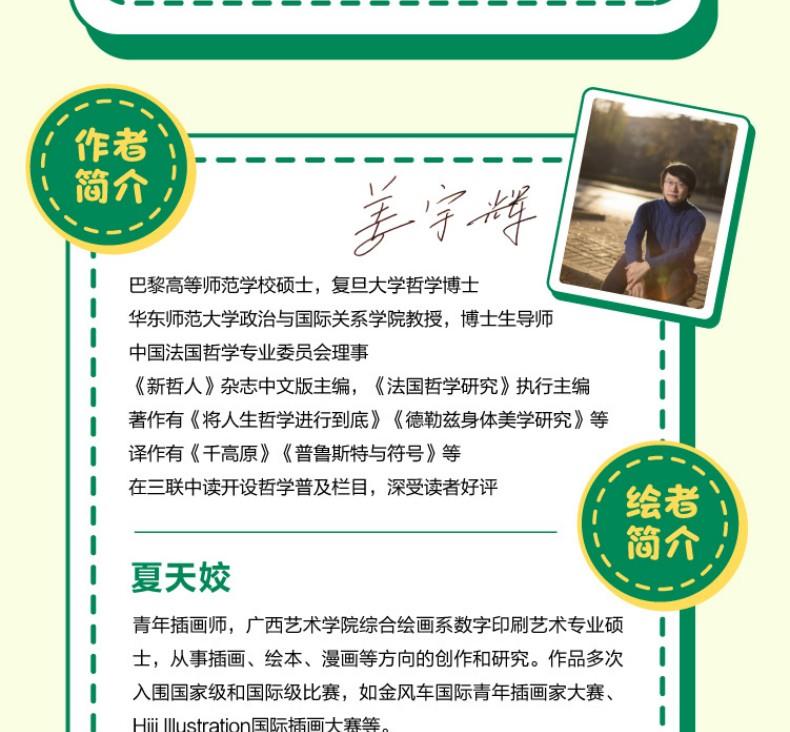 作者
简介
姜宇辉
巴黎高等师范学校硕士，复旦大学哲学博士
华东师范大学政治与国际关系学院教授，博士生导师
中国法国哲学专业委员会理事
《新哲人》杂志中文版主编，《法国哲学研究》执行主编
著作有《将人生哲学进行到底》《德勒兹身体美学研究》等
译作有《千高原》《普鲁斯特与符号》等
在三联中读开设哲学普及栏目，深受读者好评
绘者
简介
夏天姣
青年插画师，广西艺术学院综合绘画系数字印刷艺术专业硕
士，从事插画、绘本、漫画等方向的创作和研究。作品多次
入围国家级和国际级比赛，如金风车国际青年插画家大赛、
Hiii Illustration国际插画大赛等。